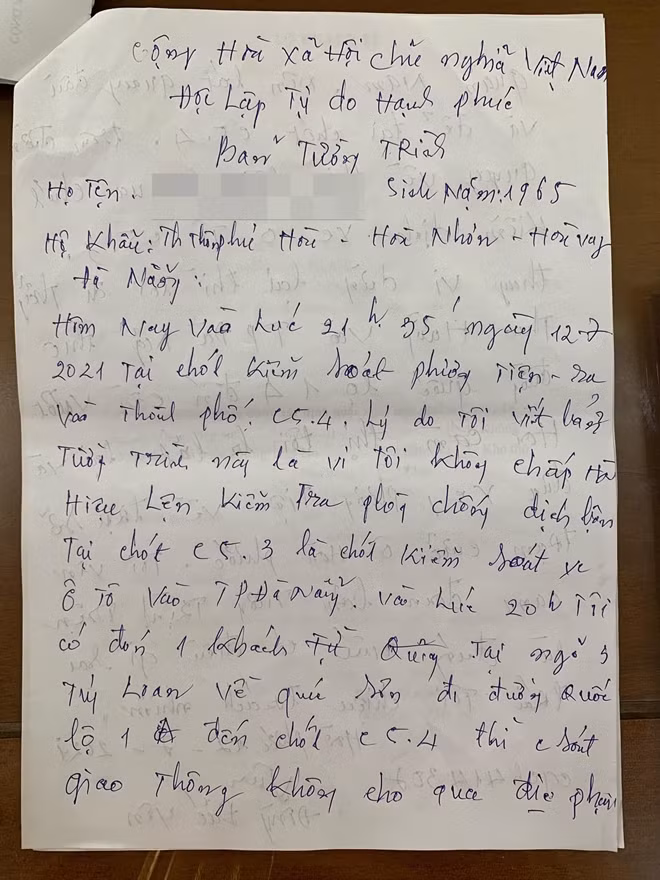 Cộng Hoà Xã Hội chủ nghĩa Việt Nam
Độc Lập Tự do Hạnh phúc
Bản Tường Trình
Họ Tên: Sinh Năm: 1965
Hộ Khẩu: Th Thôn phú Hoà - Hoà Nhơn - Hoà vag
Đà Nẵng:
Hôm Nay Vào Lúc 21h 35' ngày 12-7
2021 Tại chốt Kiểm soát phương Tiện - ra
Vào Thành phố. C5.4. Lý do Tôi viết bản
Tường Trình này là vì Tôi không chấp Hà
Hiệu Lện Kiểm Tra phòng chống dịch bện
Tại chốt C5.3 là chốt Kiểm soát xe
Ô Tô vào TP Đà Nẵng. vào Lúc 20h Tôi
có đón 1 khách Từ Tại ngã 3
Tuý Loan về quế Sơn đi đường Quốc
lộ 1 đến chốt C5.4 thì c sát
giao Thông không cho qua địa phận